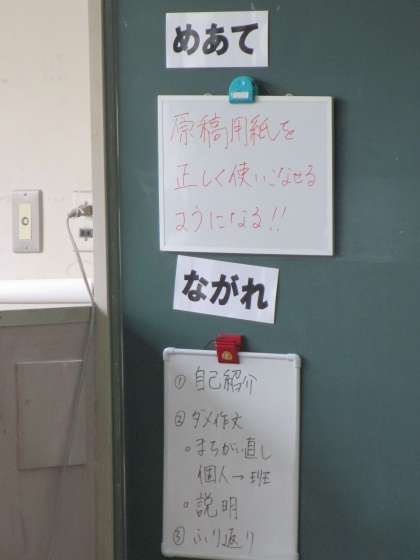 めあて
原稿用紙を
正しく使いこなせる
ようになる!!
ながれ
① 自己紹介
② ダメ作文
・まちがい直し
個人→班
・説明
③ ふり返り